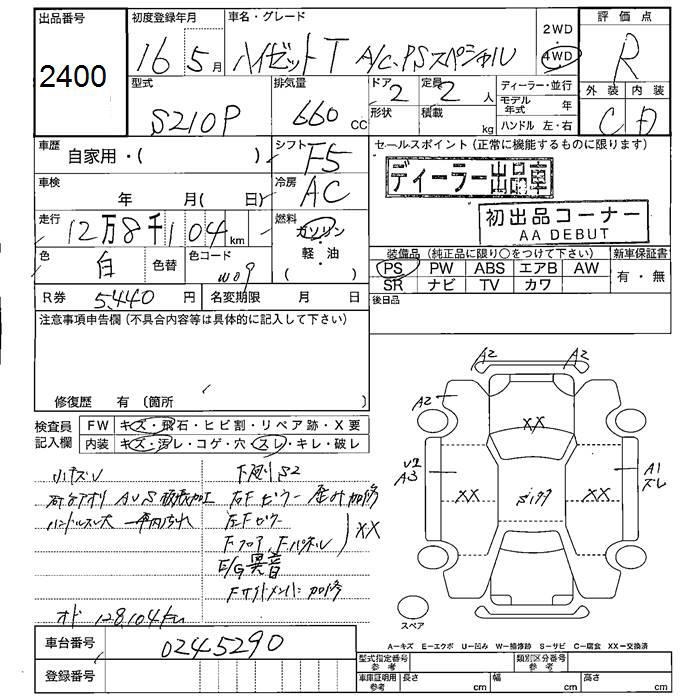 出品番号
2400
初度登録年月
16 5月
車名・グレード
ハイゼットT A/C.PSスペシャル
2WD
・
4WD
評価点
R
外装 内装
C D
型式
S210P
排気量
660 cc
ドア 2
形状
定員 2 人
積載 kg
ディーラー・並行
モデル年式 年
ハンドル 左・右
車歴
自家用・( )
シフト F5
セールスポイント(正常に機能するものに限ります)
ディーラー出品車
初出品コーナー
AA DEBUT
車検
年 月( 日)
冷房 AC
走行
12万8千104 km
燃料
ガソリン
軽・油
( )
色
白 色替
色コード
W09
装備品(純正品に限り○をつけて下さい)
新車保証書
PS PW ABS エアB AW
有・無
SR ナビ TV カワ
R券 5,440 円
名変期限 月 日
後日品
注意事項申告欄(不具合内容等は具体的に記入して下さい)
修復歴 有(箇所 )
検査員
記入欄
FW キズ・飛石・ヒビ割・リペア跡・X要
内装 キズ・汚レ・コゲ・穴・スレ・キレ・破レ
小キズU
ハンドルスレ大
右Fピラー 歪み加修
左Fピラー
Fフロア、Fパネル
XX
E/G異音
オド 128,104km
A2 A2
A2
XX
U2
A3
XX
XX
A1
ズレ
スペア
A−キズ E−エクボ U−凹み W−補修跡 S−サビ C−腐食 XX−交換済
車台番号 0245290
登録番号
型式指定番号
参考
類別区分番号
参考
車庫証明用
参考
長さ cm
幅 cm
高さ cm